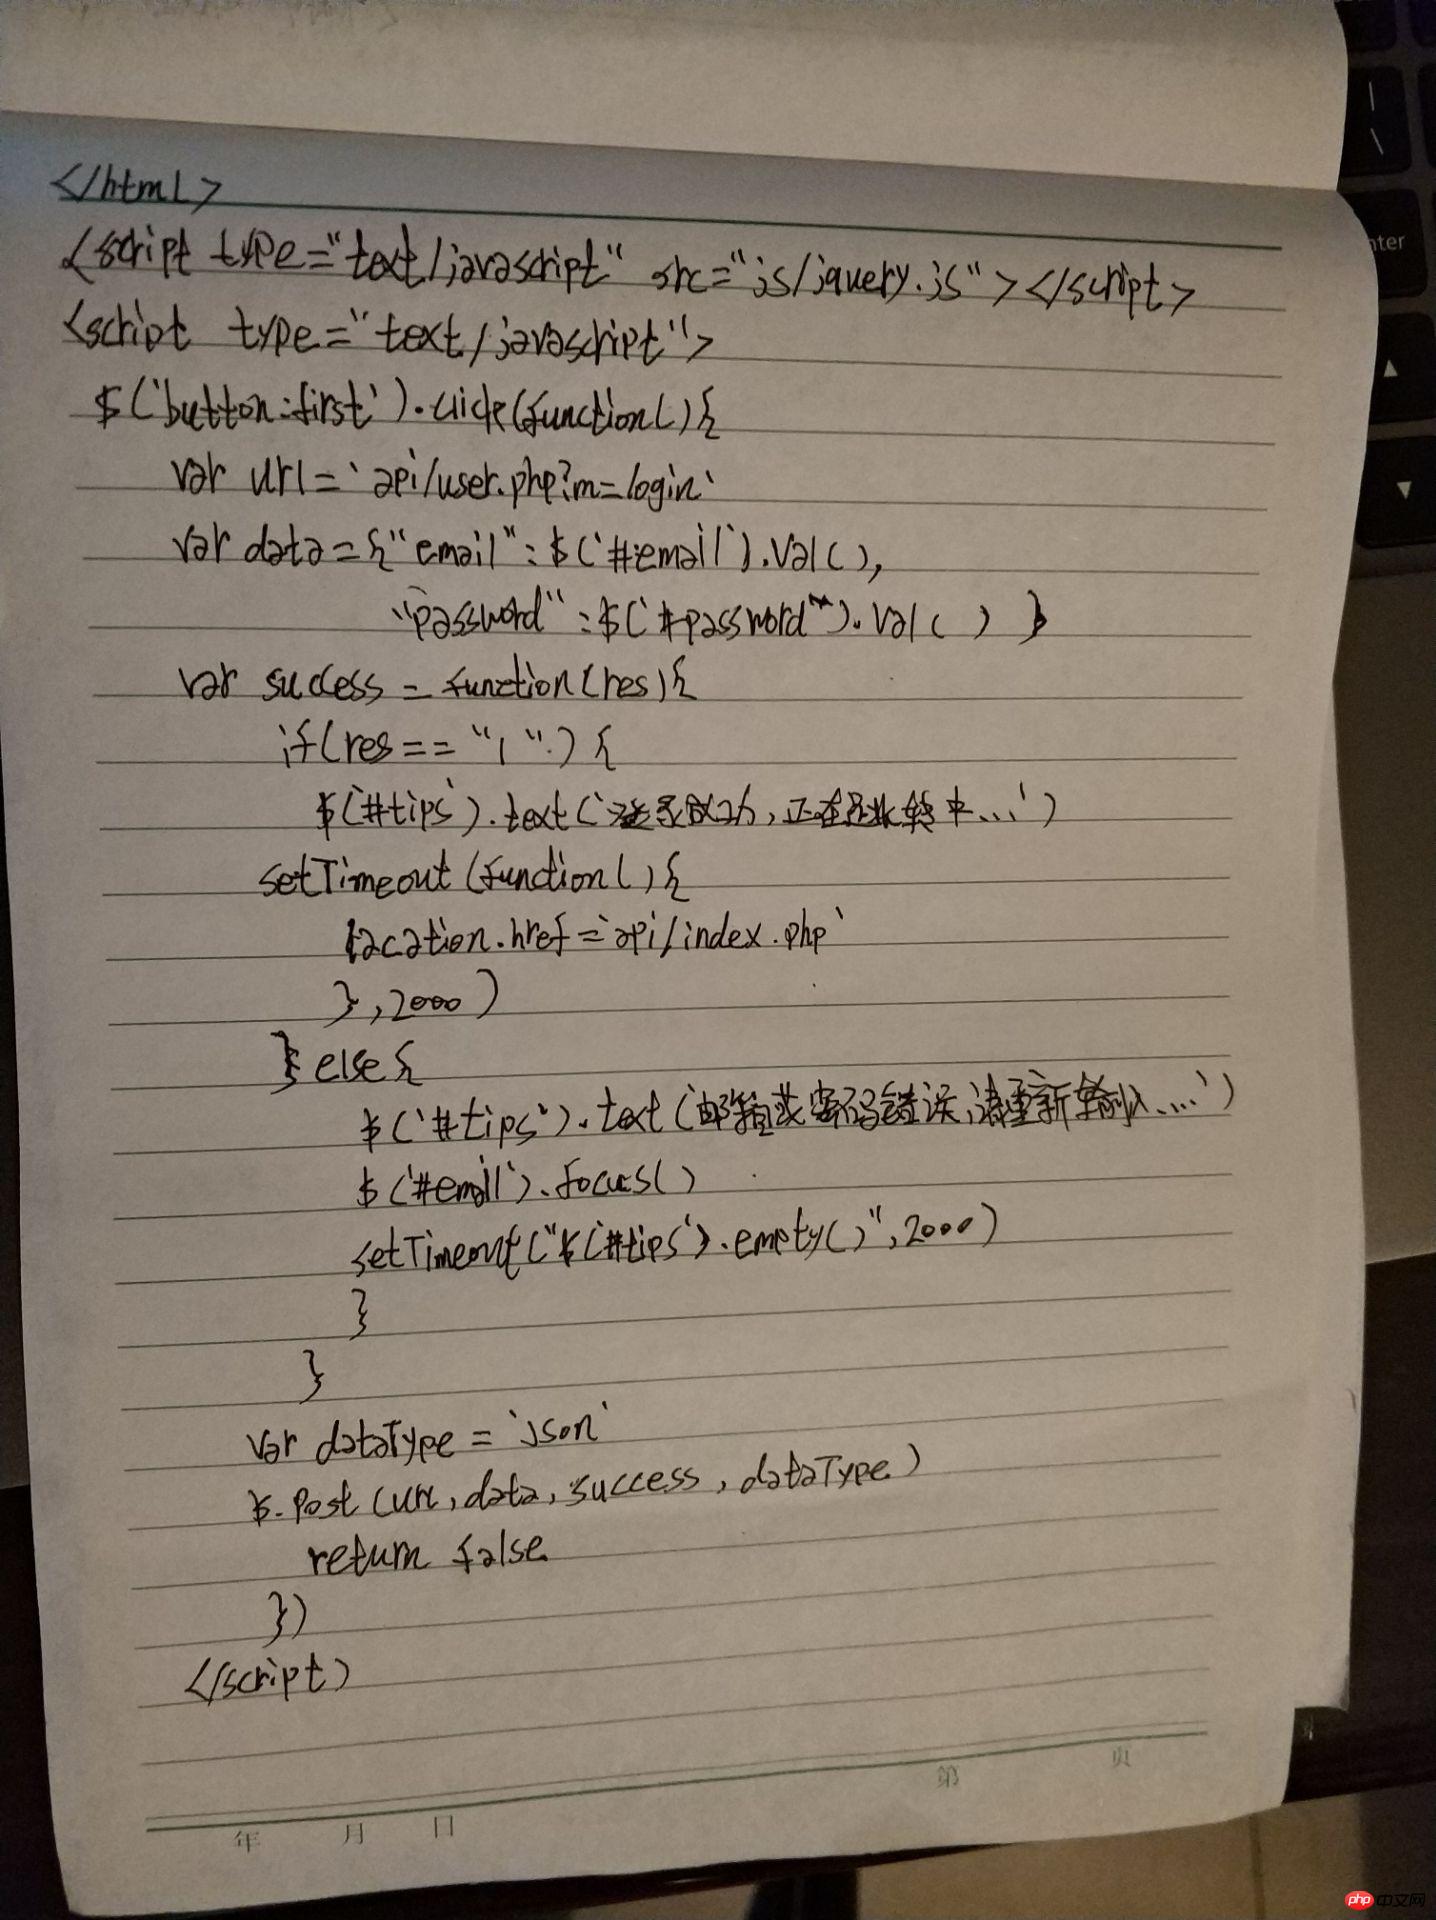 </html>
<script type="text/javascript" src="js/jquery.js"></script>
<script type="text/javascript">
$('button:first').click(function(){
var url='api/user.php?m=login'
var data={"email":$('#email').val(),
"password":$('#password').val() }
var success = function(res){
if(res=="1"){
$('#tips').text('登录成功,正在跳转中...')
setTimeout(function(){
lacation.href='api/index.php'
},2000)
}else{
$('#tips').text(邮箱或密码错误,请重新输入....')
$('#email').focus()
setTimeout("$('#tips').empty()",2000)
}
}
var dataType='json'
$.post(url,data,success,dataType)
return false
})
</script)
年 月 日
第 页
enter
php中文网